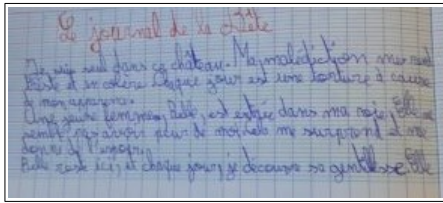 Le journal de la Bête
Je suis seul dans ce château. Ma malédiction me rend
triste et en colère chaque jour est une torture à cause
de mon apparence.
Une jeune femme, Belle, est entrée dans ma vie, Elle ne
semble pas avoir peur de moi, cela me surprend et me
donne de l'espoir.
Belle reste ici, et chaque jour, je découvre sa gentillesse. Elle